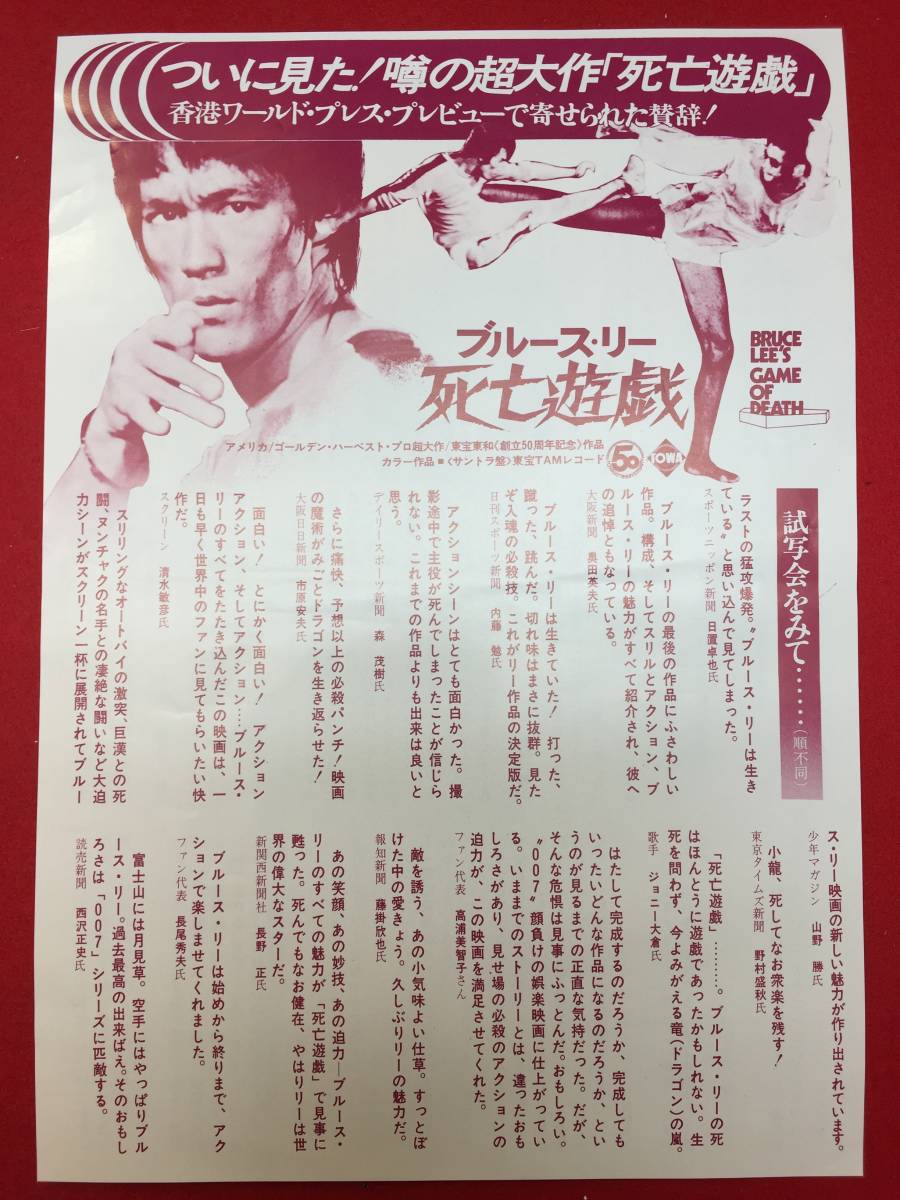 ついに見た!噂の超大作「死亡遊戯」
香港ワールド・プレス・プレビューで寄せられた賛辞!
ブルース・リー
死亡遊戯
BRUCE
LEE'S
GAME
OF
DEATH
アメリカ/ゴールデン・ハーベスト・プロ超大作/東宝東和〈創立50周年記念〉作品
カラー作品■〈サントラ盤〉東宝TAMレコード
50
TOWA
試写会をみて……(順不同)
ラストの猛攻爆発。〝ブルース・リーは生き
ている〟と思い込んで見てしまった。
スポーツニッポン新聞 日置卓也氏
ブルース・リーの最後の作品にふさわしい
作品。構成、そしてスリルとアクション、ブ
ルース・リーの魅力がすべて紹介され、彼へ
の追悼ともなっている。
大阪新聞 奥田英夫氏
ブルース・リーは生きていた! 打った、
蹴った、跳んだ。切れ味はまさに抜群。見た
ぞ入魂の必殺技。これがリー作品の決定版だ。
日刊スポーツ新聞 内藤 勉氏
アクションシーンはとても面白かった。撮
影途中で主役が死んでしまったことが信じら
れない。これまでの作品よりも出来は良いと
思う。
デイリースポーツ新聞 森 茂樹氏
さらに痛快、予想以上の必殺パンチ!映画
の魔術がみごとドラゴンを生き返らせた!
大阪日日新聞 市原安夫氏
面白い! とにかく面白い! アクション
アクション、そしてアクション……ブルース・
リーのすべてをたたき込んだこの映画は、一
日も早く世界中のファンに見てもらいたい快
作だ。
スクリーン 清水敏彦氏
スリリングなオートバイの激突、巨漢との死
闘、ヌンチャクの名手との凄絶な闘いなど大迫
力シーンがスクリーン一杯に展開されてブルー
ス・リー映画の新しい魅力が作り出されています。
少年マガジン 山野 勝氏
小龍、死してなお衆楽を残す!
東京タイムズ新聞 野村盛秋氏
「死亡遊戯」………。ブルース・リーの死
はほんとうに遊戯であったかもしれない。生
死を問わず、今よみがえる竜(ドラゴン)の嵐。
歌手 ジョニー大倉氏
はたして完成するのだろうか、完成しても
いったいどんな作品になるのだろうか、とい
うのが見るまでの正直な気持だった。だが、
そんな危惧は見事にふっとんだ。おもしろい。
〝007〟顔負けの娯楽映画に仕上がってい
る。いままでのストーリーとは、違ったおも
しろさがあり、見せ場の必殺のアクションの
迫力が、この映画を満足させてくれた。
ファン代表 高浦美智子さん
敵を誘う、あの小気味よい仕草。すっとぼ
けた中の愛きょう。久しぶりリーの魅力だ。
報知新聞 藤掛欣也氏
あの笑顔、あの妙技、あの迫力―ブルース・
リーのすべての魅力が「死亡遊戯」で見事に
甦った。死んでもなお健在、やはりリーは世
界の偉大なスターだ。
新関西新聞社 長野 正氏
ブルース・リーは始めから終りまで、アク
ションで楽しませてくれました。
ファン代表 長尾秀夫氏
富士山には月見草。空手にはやっぱりブル
ース・リー。過去最高の出来ばえ。そのおもし
ろさは「007」シリーズに匹敵する。
読売新聞 西沢正史氏